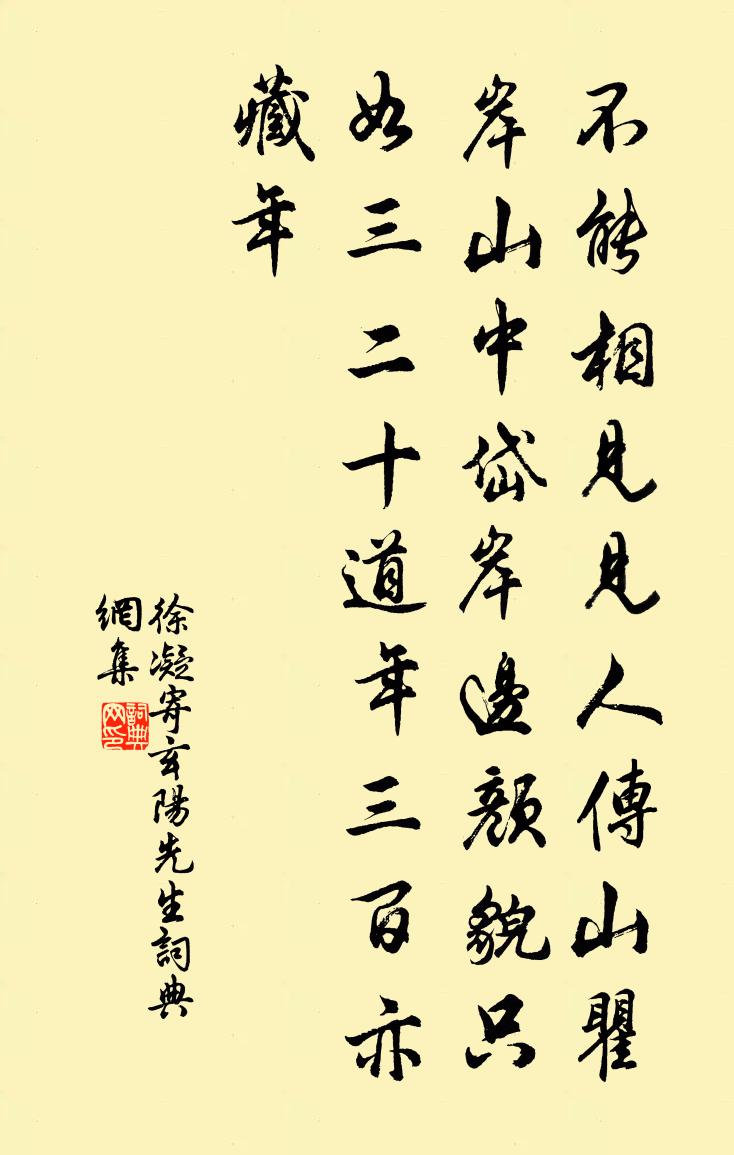 不能相見見人傳山瞿
岸山中岱岸邊顏貌只
如三二十道年三百亦
藏年
徐凝寄玄陽先生詞典
網集
詞典
网印